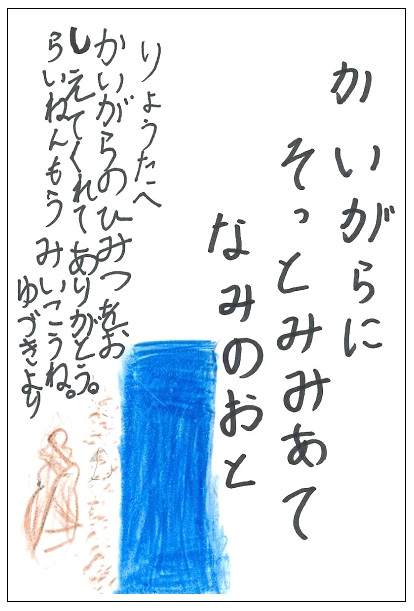 かいがらに
そっとみみあて
なみのおと
りょうたへ
かいがらのひみつをお
しえてくれてありがとう。
らいねんもうみいこうね。
ゆづきより